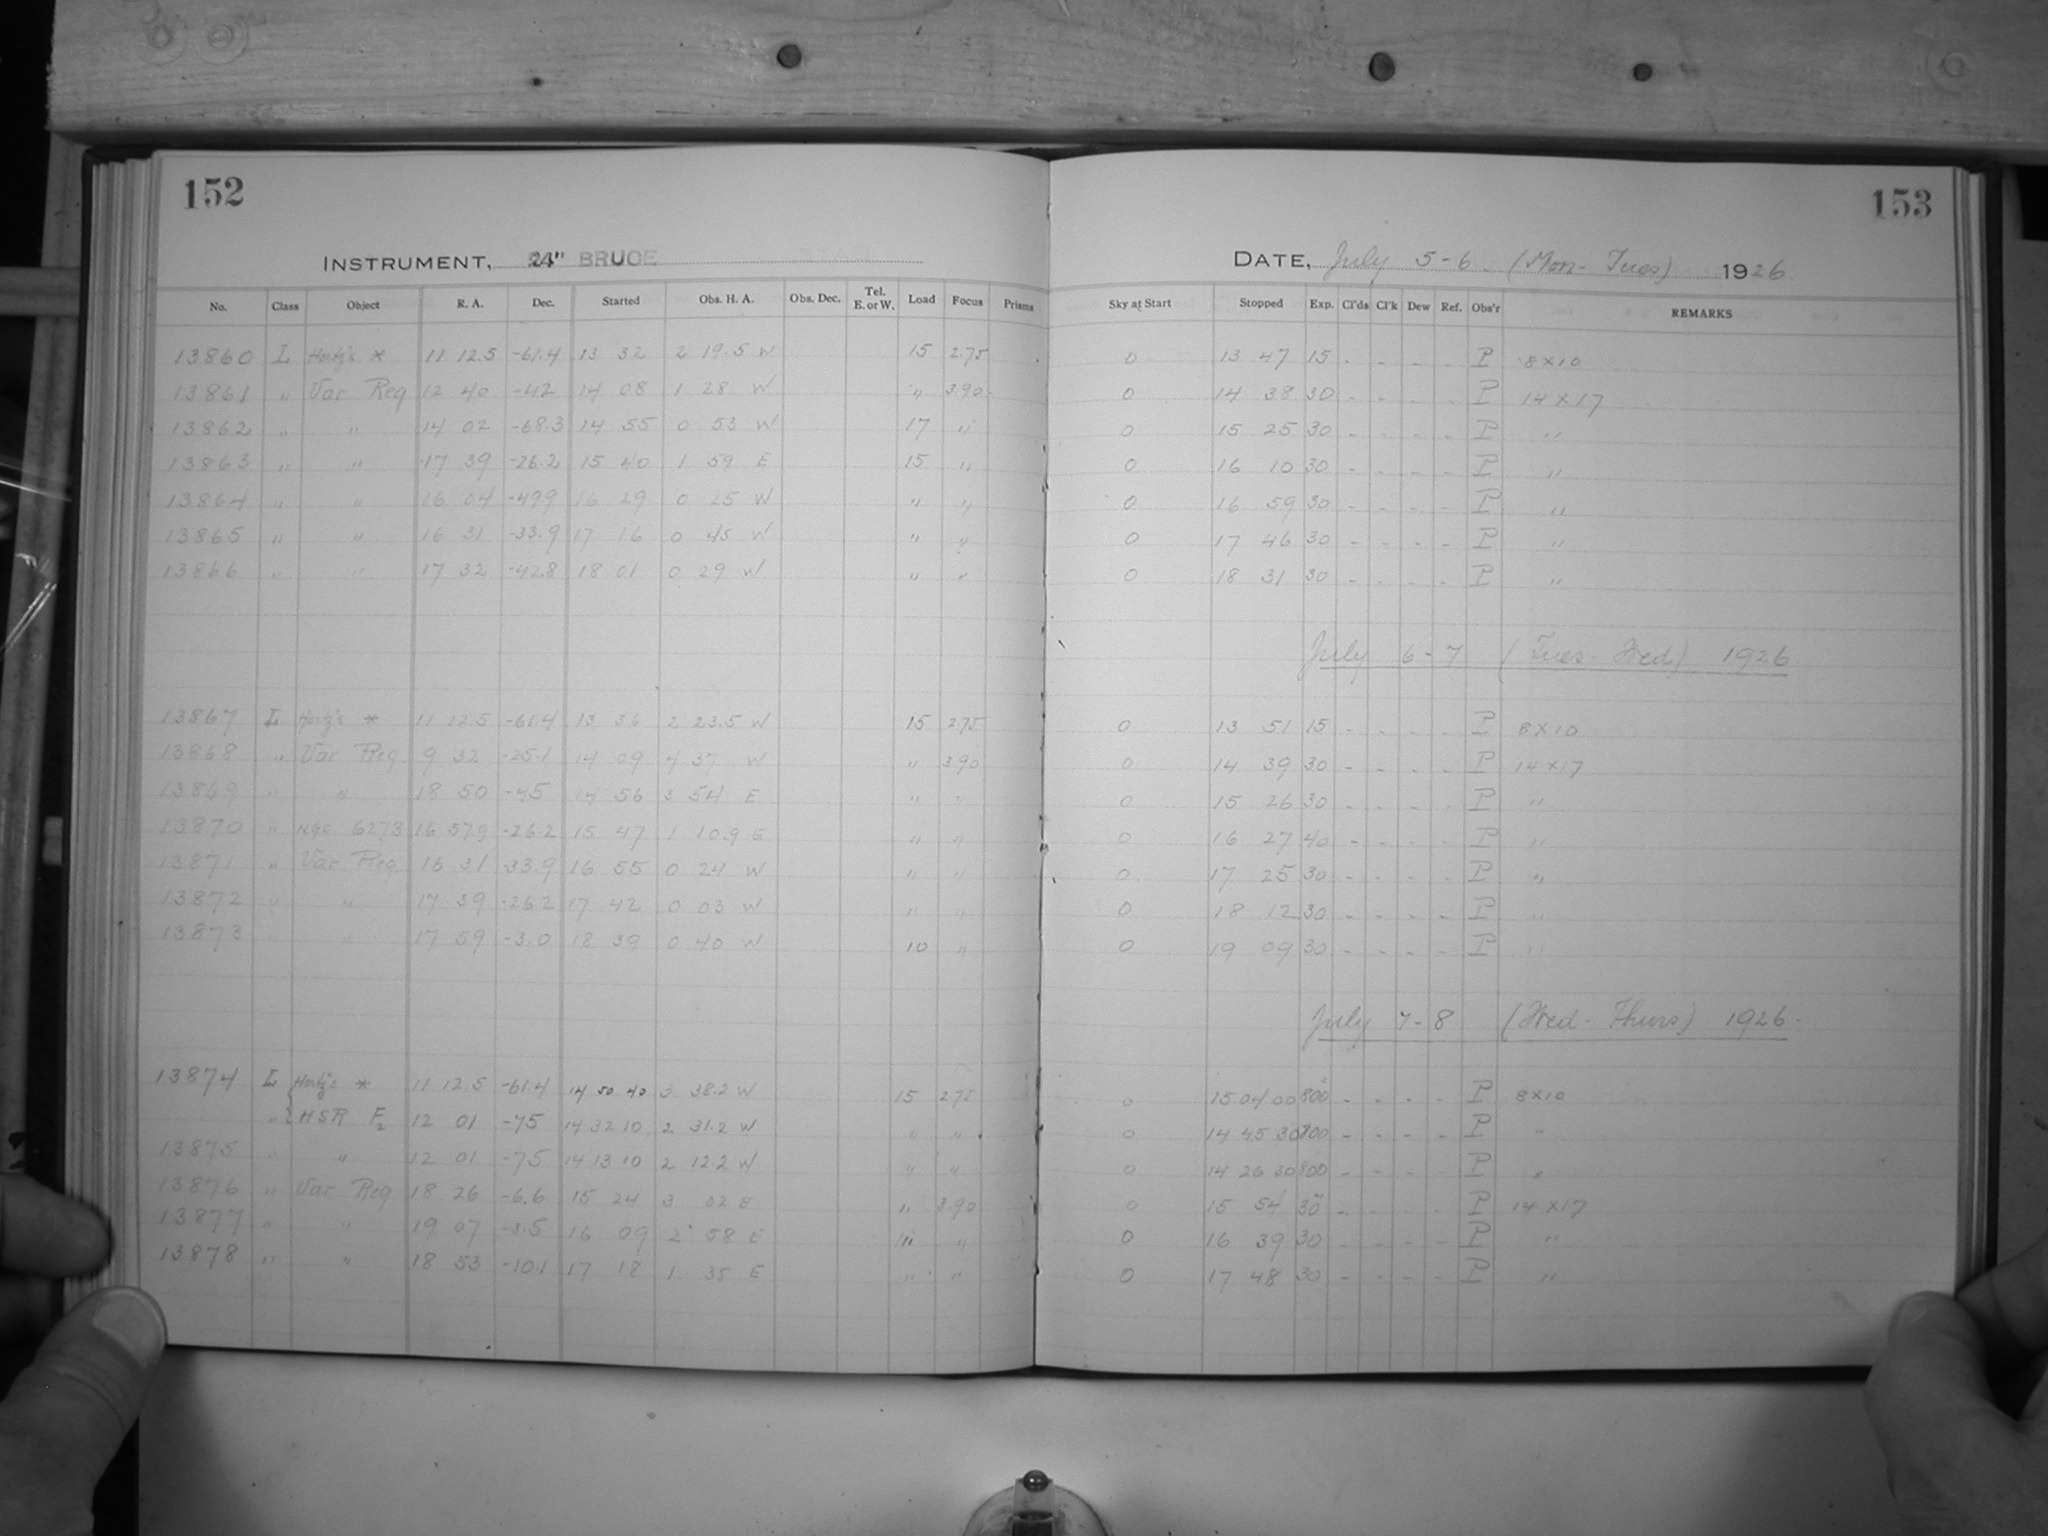 152
153
INSTRUMENT, 24" BRUCE
DATE, July 5-6. (Mon-Tues) 1926
No. Class Object R. A. Dec. Started Obs. H. A. Obs. Dec. Tel. E. or W. Load Focus Prisms Sky at Start Stopped Exp. Cl'ds Cl'k Dew Ref. Obs'r REMARKS
13860 L Hertz's * 11 12.5 -61.4 13 32 2 19.5 W 15 2.75 0 13 47 15 - - - - P 8x10
13861 " Var Reg 12 40 -42 14 08 1 28 W " 3.90 0 14 38 30 - - - - P 14x17
13862 " " 14 02 -68.3 14 55 0 53 W 17 " 0 15 25 30 - - - - P "
13863 " " 17 39 -26.2 15 40 1 59 E 15 " 0 16 10 30 - - - - P "
13864 " " 16 04 -49.9 16 29 0 25 W " " 0 16 59 30 - - - - P "
13865 " " 16 31 -33.9 17 16 0 45 W " " 0 17 46 30 - - - - P "
13866 " " 17 32 -42.8 18 01 0 29 W " " 0 18 31 30 - - - - P "
July 6-7 (Tues-Wed) 1926
13867 L Hertz's * 11 12.5 -61.4 13 36 2 23.5 W 15 2.75 0 13 51 15 - - - - P 8x10
13868 " Var Reg 9 32 -25.1 14 09 4 37 W " 3.90 0 14 39 30 - - - - P 14x17
13869 " " 18 50 -45 14 56 3 54 E " " 0 15 26 30 - - - - P "
13870 " NGC 6273 16 57.9 -26.2 15 47 1 10.9 E " " 0 16 27 40 - - - - P "
13871 " Var Reg 16 31 -33.9 16 55 0 24 W " " 0 17 25 30 - - - - P "
13872 " " 17 39 -26.2 17 42 0 03 W " " 0 18 12 30 - - - - P "
13873 " " 17 59 -3.0 18 39 0 40 W 10 " 0 19 09 30 - - - - P "
July 7-8 (Wed-Thurs) 1926.
13874 L Hertz's * 11 12.5 -61.4 14 50 40 3 38.2 W 15 2.75 0 15 04 00 800 - - - - P 8x10
" HSR F2 12 01 -75 14 32 10 2 31.2 W " " 0 14 45 30 800 - - - - P "
13875 " " 12 01 -75 14 13 10 2 12.2 W " " 0 14 26 30 800 - - - - P "
13876 " Var Reg 18 26 -6.6 15 24 3 02 E " 3.90 0 15 54 30 - - - - P 14x17
13877 " " 19 07 -3.5 16 09 2 58 E " " 0 16 39 30 - - - - P "
13878 " " 18 53 -10.1 17 18 1 35 E " " 0 17 48 30 - - - - P "